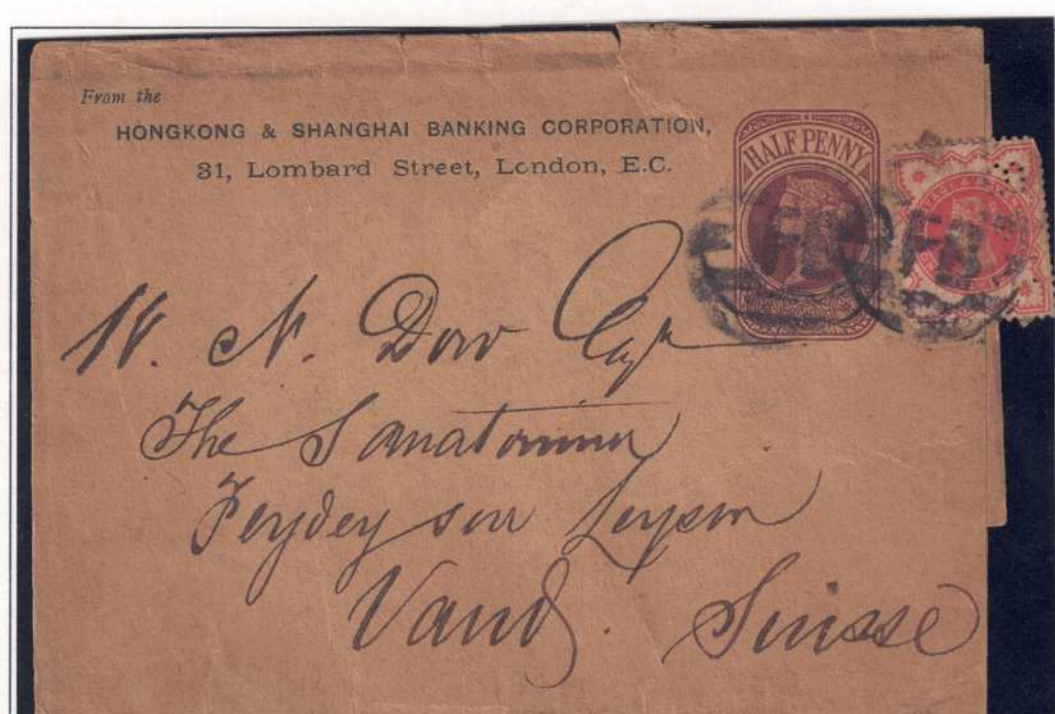 From the
HONGKONG & SHANGHAI BANKING CORPORATION,
31, Lombard Street, London, E.C.
HALF PENNY
W. N. Dow Esqr
The Sanatorium
Feydey sur Leysin
Vaud. Suisse